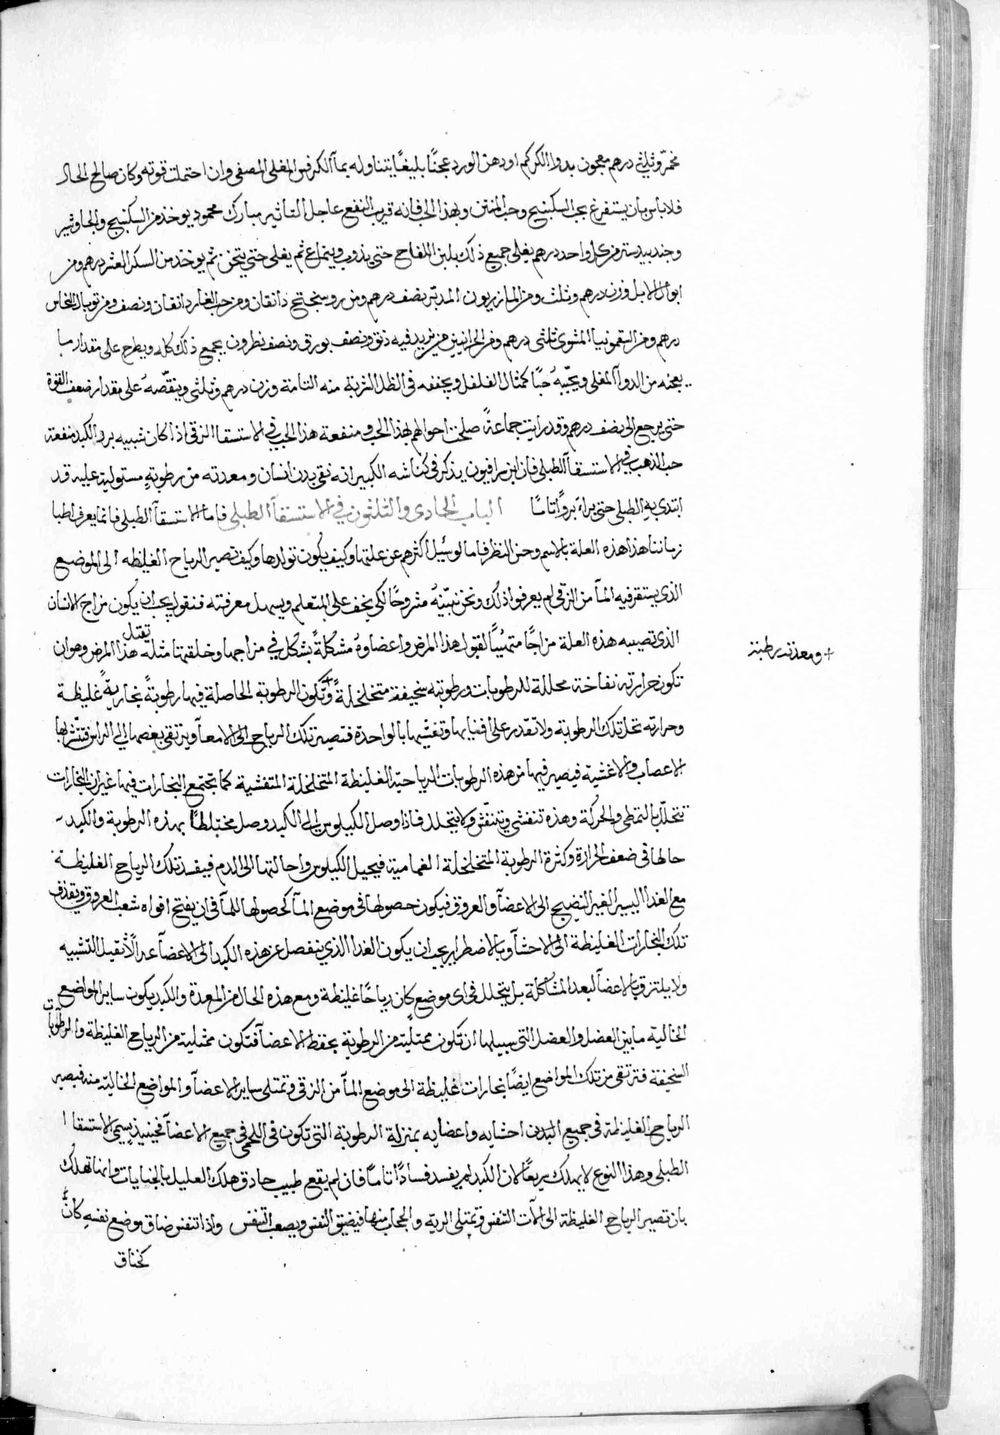 مخمر وثلثي درهم معجون بدوا الكركم او دهن الورد عجنًا بليغًا يتناوله بمآ الكرفس المغلى المصفى وان احتملت قوته وكان صالح الحال
فلا باس بان يستفرغ بحب السكبينج وحب المنتن وبهذا الحب فانه قريب النفع عاجل التاثير مبارك محمود يوخذ من السكبينج والجاوشير
وجندبيدستر من كل واحد درهم يغلى جميع ذلك بلبن اللقاح حتى يذوب وينماع ثم يغلى حتى يثخن ثم يوخذ من السكر العشر درهم ومن
ابوال الابل وزن درهم وثلث ومن المازريون المدبر نصف درهم ومن دانقان ومن حب الغار دانقان ونصف ومن توبال النحاس
درهم ومن السقمونيا المشوى ثلثى درهم ومن نزيد فيه دنق ونصف بورق ونصف نطرون يجمع ذلك كله ويطرح على مقدار ما
يعجنه من الدوآ المغلى ويحببه حبًا كمثال الفلفل ويجففه فى الظل الشربة منه التامة وزن درهم وثلثى وينقصه على مقدار ضعف القوة
حتى يرجع الى نصف درهم وقد رايت جماعة صلحت احوالهم بهذا الحب ومنفعة هذا الحب فى الاستسقا الزقى اذا كان شبيه برد الكبد منفعة
حب الذهب فى الاستسقآ الطبلى فان ابن سرافيون يذكر فى كناشه الكبير انه نقى بدن انسان ومعدته من رطوبة مستولية عليه قد
ابتدى به الطبلى حتى برا برؤًا تامًا الباب الحادى والثلثون فى الاستسقآ الطبلى فاما الاستسقآ الطبلى فانما يعرف اطبا
زماننا هذا هذه العلة بالاسم وحسن النظر فاما لو سئل اكثرهم عن علتها وكيف يكون تولدها وكيف تصير الرياح الغليظه الى الموضع
الذى يستقر فيه المآ من الزقى لم يعرفوا ذلك ونحن نبينه مشروحًا لكى يخف على المتعلم ويسهل معرفته فنقول يجب ان يكون مزاج الانسان
الذى تصيبه هذه العلة مزاجًا متهيئًا لقبول هذا المرض واعضاوه مشكلة بشكل فى مزاجها وخلقتها مثله تقبل هذا المرض وهو ان
تكون حرارته نفاخة محللة للرطوبات ورطوبته سخيفة متخلخلة وتكون الرطوبة الحاصلة فيها رطوبة بخارية غليظة
+ ومعدته رطبة
وحرارته تحل تلك الرطوبة ولا تقدر على افنايها وتفشيها بالواحدة فتصير تلك الرياح الى الامعآ ويرتقى بعضها الى الراس فتتشربها
الاعصاب والاغشية فيصير فيها من هذه الرطوبات الرياحية الغليظة المتخلخلة المتفشية كما تجتمع البخارات فيها غير ان البخارات
تتحلل بالتمطى والحركة وهذه تنفشى وتنتفش ولا يتحلل فاذا وصل الكيلوس الى الكبد وصل مختلطًا بهذه الرطوبة والكبد
حالها فى ضعف الحرارة وكثرة الرطوبة المتخلخلة الغمامية فيحيل الكيلوس واحالتها الى الدم فيفسد تلك الرياح الغليظة
مع الغذا اليسير الغير النضيج الى الاعضآ والعروق فيكون حصولها فى موضع المآ كحصولها للمآ فى ان يفتح افواه شعب العروق ويقذف
تلك البخارات الغليظة الى الاحشآ وبالاضطرار يجب ان يكون الغذا الذى ينفصل عن هذه الكبد الى الاعضآ غذآ لا تقبل التشبيه
ولا يلتزق بالاعضآ لبعد المشاكلة بل يتحلل فى اى موضع كان رياحًا غليظة ومع هذه الحال من المعدة والكبد يكون ساير المواضع
الخالية ما بين العضل والعضل التى سبيلها ان تكون ممتلية من الرطوبة يحفظ الاعضآ فتكون ممتلية من الرياح الغليظة والرطوبات
السخيفة فترتقى من تلك المواضع ايضًا بخارات غليظة الى موضع المآ من الزقى وتمتلى ساير الاعضآ والمواضع الخالية منه فيصير
الرياح الغليظة فى جميع البدن احشايه واعضايه بمنزلة الرطوبة التى تكون فى اللحمى فى جميع الاعضآ فحينيذ يسمى الاستسقا
الطبلى وهذا النوع لا يهلك سريعًا لان الكبد لم يفسد فسادًا تامًا فان لم يقع طبيب حاذق هلك العليل بالجنايات وانما تهلك
بان تصير الرياح الغليظة الى الات التنفس وتمتلى الرية والحجاب منها فيضيق النفس ويصعب التنفس واذا تنفس ضاق موضع نفسه كانه
كخناق